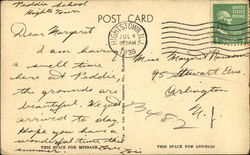 Peddie School
Hightstown
POST CARD
HIGHTSTOWN, N.J.
JUL 4
1939
Dear Margaret
I am having
a swell time
here at Peddie,
the grounds are
beautiful. We just
arrived to day.
Hope you have a
wonderful time this
summer.
Miss Margaret
95 Stewart Ave.
Arlington
N.J.
THIS SPACE FOR MESSAGE
THIS SPACE FOR ADDRESS